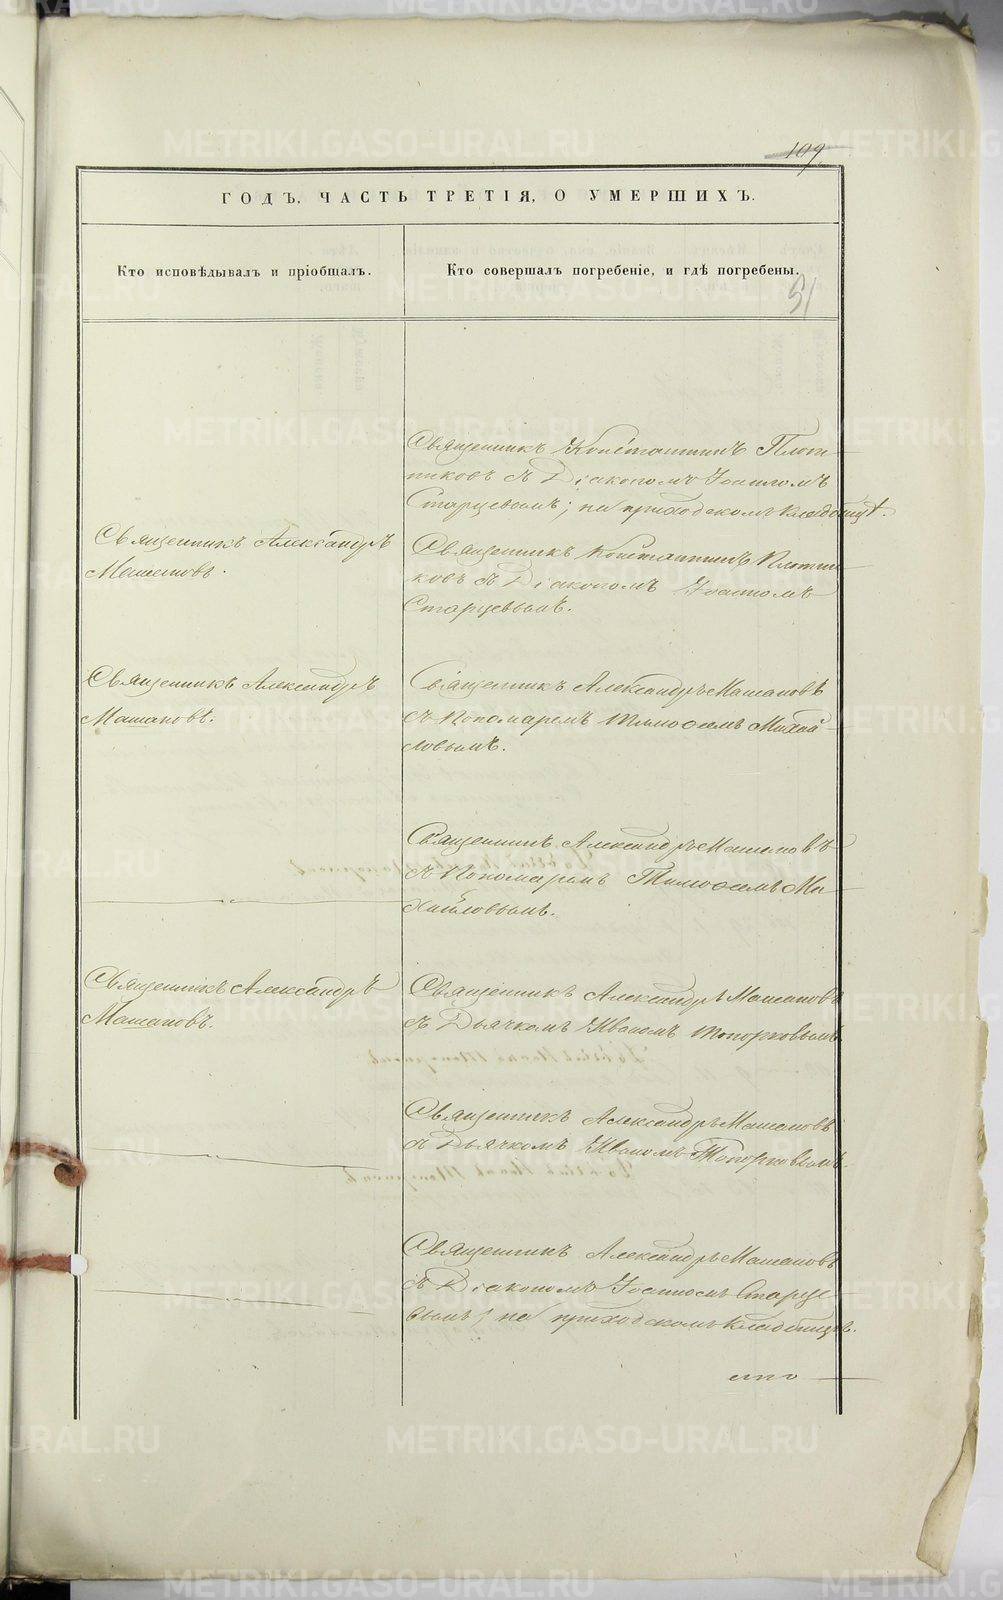 109
ГОДЪ, ЧАСТЬ ТРЕТІЯ, О УМЕРШИХЪ.
Кто исповѣдывалъ и пріобщалъ.
Кто совершалъ погребеніе, и гдѣ погребены.
51
Священникъ Константинъ Плот-
никовъ съ Діакономъ Іоанномъ
Старцевымъ; на приходскомъ кладбищѣ.
Священникъ Александръ
Машановъ.
Священникъ Константинъ Плотни-
ковъ съ Діакономъ Іоанномъ
Старцевымъ.
Священникъ Александръ
Машановъ.
Священникъ Александръ Машановъ
съ Пономаремъ Тимофеемъ Михай-
ловымъ.
Священникъ Александръ Машановъ
съ Пономаремъ Тимофеемъ Ми-
хайловымъ.
Священникъ Александръ
Машановъ.
Священникъ Александръ Машановъ
съ Дьячкомъ Иваномъ Топорковымъ.
Священникъ Александръ Машановъ
съ Дьячкомъ Иваномъ Топорковымъ.
Священникъ Александръ Машановъ
съ Діакономъ Іоанномъ Старце-
вымъ; на приходскомъ кладбищѣ.
METRIKI.GASO-URAL.RU